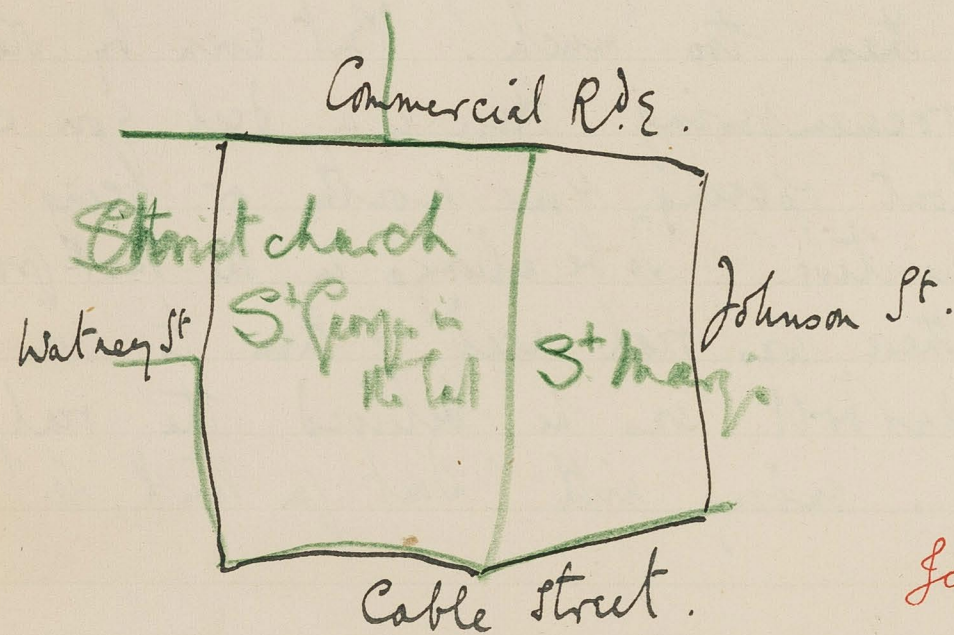 Commercial Rd. E.
Christ church
St George in
the East
Watney St
St Mary's
Johnson St.
Cable Street.